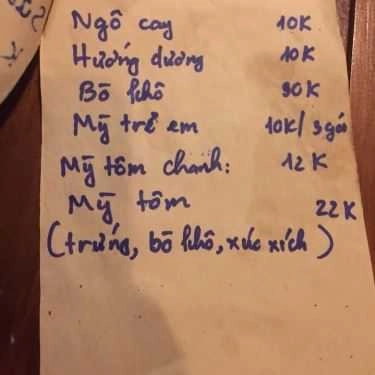 Ngô cay 10K
Hướng dương 10K
Bò khô 30K
Mỳ trẻ em 10K/3gói
Mỳ tôm chanh: 12K
Mỳ tôm 22K
(trứng, bò khô, xúc xích)